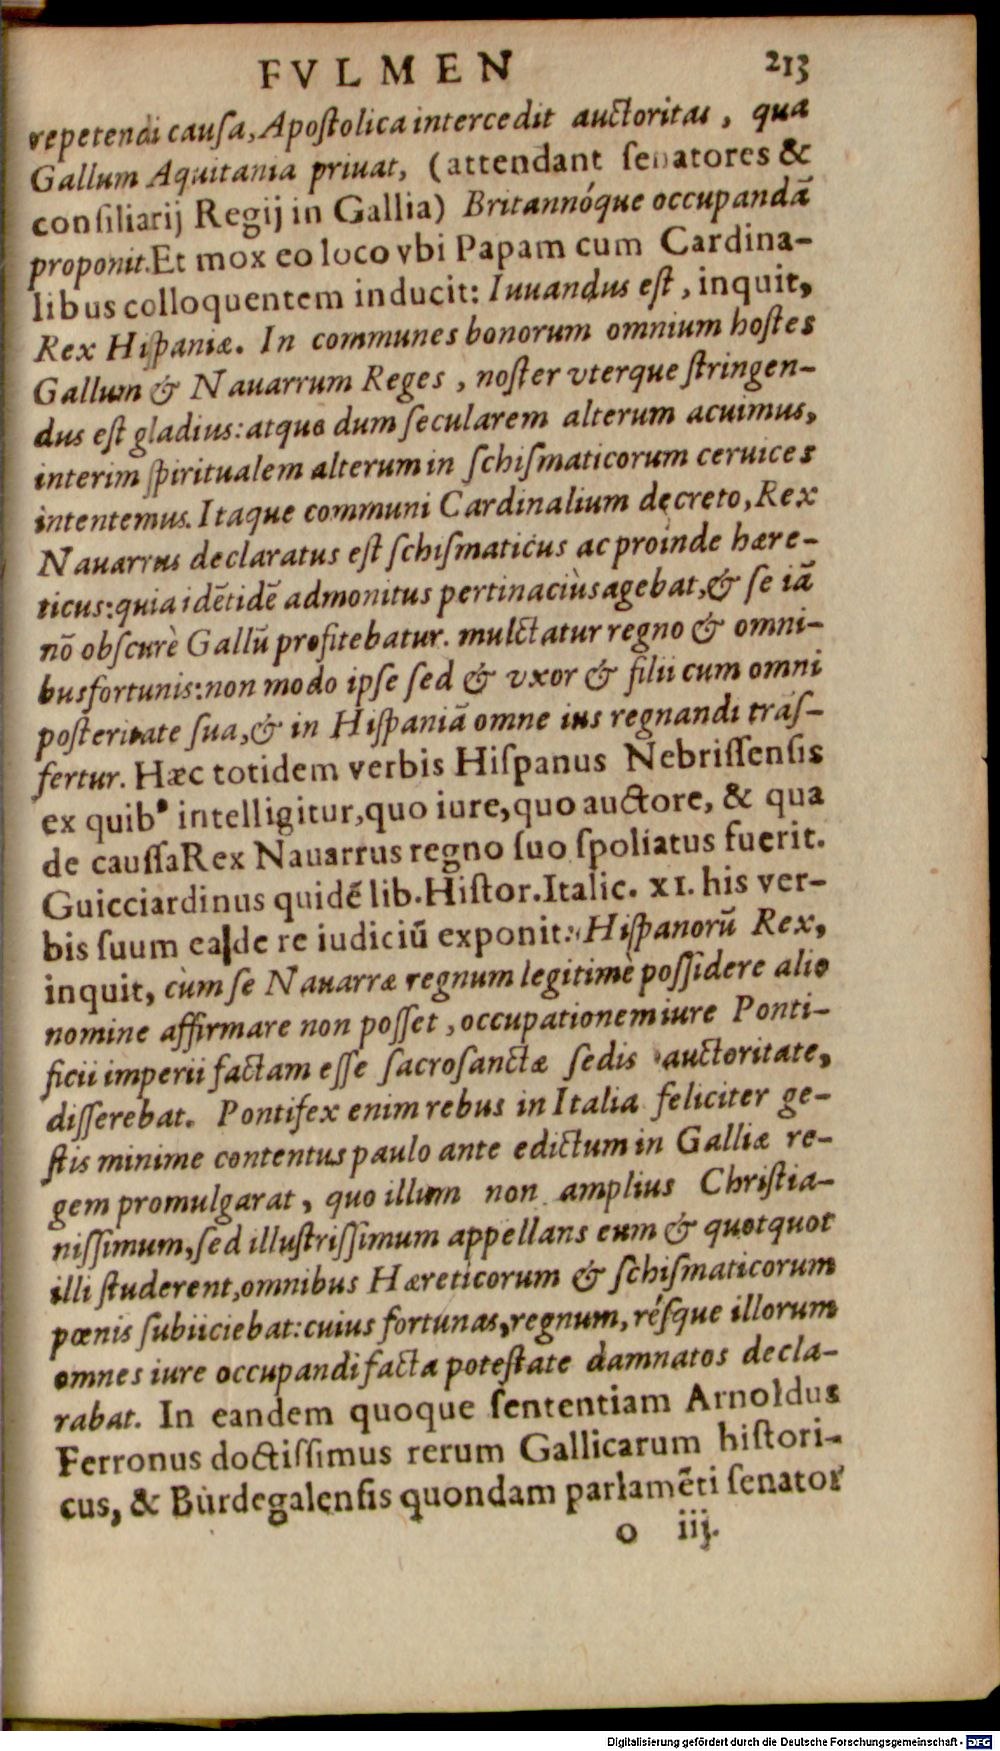 FVLMEN 213
repetendi cauſa, Apoſtolica intercedit auctoritas, qua
Gallum Aquitania priuat, (attendant ſenatores &
conſiliarij Regij in Gallia) Britannóque occupandā
proponit. Et mox eo loco vbi Papam cum Cardina-
libus colloquentem inducit: Iuuandus eſt, inquit,
Rex Hiſpaniæ. In communes bonorum omnium hoſtes
Gallum & Nauarrum Reges, noſter vterque ſtringen-
dus eſt gladius: atque dum ſecularem alterum acuimus,
interim ſpiritualem alterum in ſchiſmaticorum ceruices
intentemus. Itaque communi Cardinalium decreto, Rex
Nauarrus declaratus eſt ſchiſmaticus ac proinde hære-
ticus: quia idētidē admonitus pertinaciùs agebat, & ſe iā
nō obſcurè Gallū profitebatur. mulctatur regno & omni-
bus fortunis: non modo ipſe ſed & vxor & filii cum omni
poſteritate ſua, & in Hiſpaniā omne ius regnandi trāſ-
fertur. Hæc totidem verbis Hiſpanus Nebriſſenſis
ex quibꝰ intelligitur, quo iure, quo auctore, & qua
de cauſſa Rex Nauarrus regno ſuo ſpoliatus fuerit.
Guicciardinus quidē lib. Hiſtor. Italic. XI. his ver-
bis ſuum ea de re iudiciū exponit: Hiſpanorū Rex,
inquit, cùm ſe Nauarræ regnum legitimè poſſidere alio
nomine affirmare non poſſet, occupationem iure Ponti-
ficii imperii factam eſſe ſacroſanctæ ſedis auctoritate,
diſſerebat. Pontifex enim rebus in Italia feliciter ge-
ſtis minime contentus paulo ante edictum in Galliæ re-
gem promulgarat, quo illum non amplius Chriſtia-
niſſimum, ſed illuſtriſſimum appellans eum & quotquot
illi ſtuderent, omnibus Hæreticorum & ſchiſmaticorum
pœnis ſubiiciebat: cuius fortunas, regnum, réſque illorum
omnes iure occupandi facta poteſtate damnatos decla-
rabat. In eandem quoque ſententiam Arnoldus
Ferronus doctiſſimus rerum Gallicarum hiſtori-
cus, & Burdegalenſis quondam parlamēti ſenator
o iij.
Digitalisierung gefördert durch die Deutsche Forschungsgemeinschaft - DFG